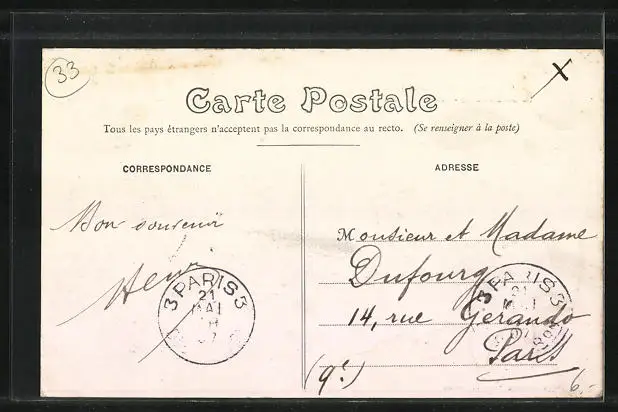 33
Carte Postale
Tous les pays étrangers n'acceptent pas la correspondance au recto. (Se renseigner à la poste)
CORRESPONDANCE
Bon souvenir
3 PARIS 3
21
MAI
07
ADRESSE
Monsieur et Madame
Dufourg
14, rue Gerando
Paris
(9e)
3 PARIS 3
21
6.-